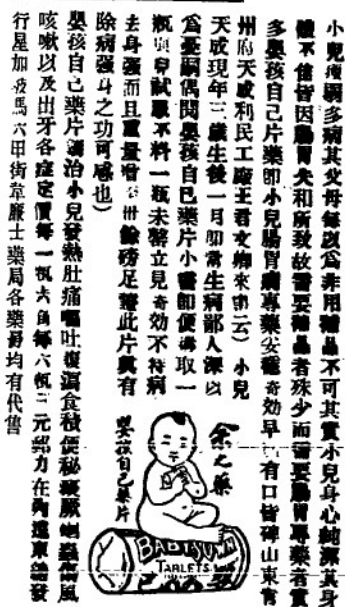 小兒瘦弱多病其父母每以為非用補品不可其實小兒身心純潔其身
體不健皆因腸胃失和所致故需要補品者殊少而需要腸胃專藥者實
多嬰孩自己片藥即小兒腸胃病專藥安穩奇効早已有口皆碑山東青
州府天成利民工廠王君文卿來函云）小兒
天成現年三歲生後一月即常生病鄙人深以
為憂嗣偶閱嬰孩自己藥片小書即便購取一
瓶與兒試服不料一瓶未罄立見奇効不特病
去身强而且重量增卅餘磅足證此片真有
除病强身之功可感也）
嬰孩自己藥片專治小兒發熱肚痛嘔吐瀉食積便秘蛔蟲傷風
咳嗽以及出牙各症定價每一瓶六角每六瓶三元郵力在內遠東總發
行星加坡馬六甲街韋廉士藥局各藥房均有代售
余之藥
嬰孩自己藥片
BABY'S OWN
TABLETS